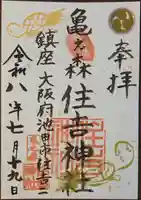 奉拝
亀之森 住吉神社
鎮座 大阪府池田市住吉
令和八年七月十九日